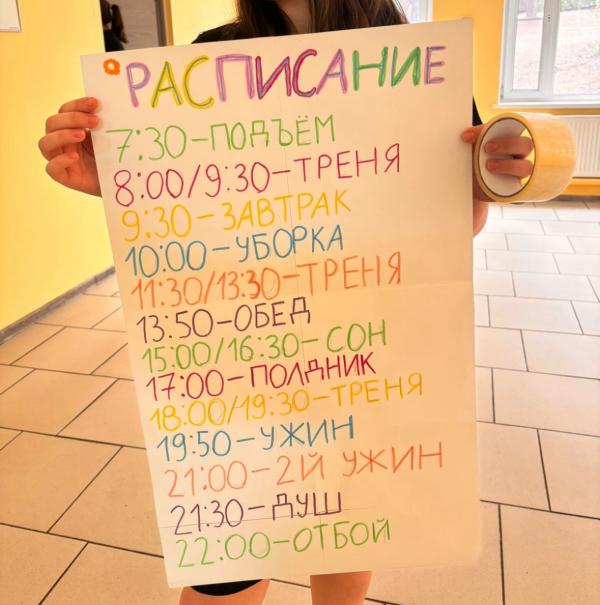 РАСПИСАНИЕ
7:30-ПОДЪЁМ
8:00/9:30-ТРЕНЯ
9:30-ЗАВТРАК
10:00-УБОРКА
11:30/13:30-ТРЕНЯ
13:50-ОБЕД
15:00/16:30-СОН
17:00-ПОЛДНИК
18:00/19:30-ТРЕНЯ
19:50-УЖИН
21:00-2Й УЖИН
21:30-ДУШ
22:00-ОТБОЙ